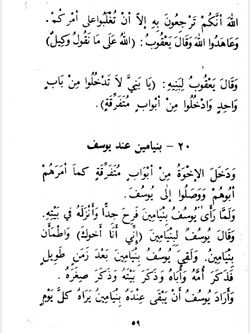 اللهَ أَنَّكُمْ تَرْجِعُونَ بِهِ إِلَّا أَنْ تُغْلَبُوا عَلَى أَمْرِكُمْ.
وَعَاهَدُوا اللهَ وَقَالَ يَعْقُوبُ: (اللهُ عَلَى مَا نَقُولُ وَكِيلٌ)
وَقَالَ يَعْقُوبُ لِبَنِيهِ: (يَا بَنِيَّ لَا تَدْخُلُوا مِنْ بَابٍ
وَاحِدٍ وَادْخُلُوا مِنْ أَبْوَابٍ مُتَفَرِّقَةٍ).
٢٠ - بنيامين عند يوسف
وَدَخَلَ الإِخْوَةُ مِنْ أَبْوَابٍ مُتَفَرِّقَةٍ كَمَا أَمَرَهُمْ
أَبُوهُمْ وَوَصَلُوا إِلَى يُوسُفَ.
وَلَمَّا رَأَى يُوسُفُ بِنْيَامِينَ فَرِحَ جِدًّا وَأَنْزَلَهُ فِي بَيْتِهِ.
وَقَالَ يُوسُفُ لِبِنْيَامِينَ (إِنِّي أَنَا أَخُوكَ) وَاطْمَأَنَّ
بِنْيَامِينُ. وَلَقِيَ يُوسُفُ بِنْيَامِينَ بَعْدَ زَمَنٍ طَوِيلٍ
فَذَكَرَ أُمَّهُ وَأَبَاهُ وَذَكَرَ بَيْتَهُ وَذَكَرَ صِغَرَهُ.
وَأَرَادَ يُوسُفُ أَنْ يَبْقَى عِنْدَهُ بِنْيَامِينُ يَرَاهُ كُلَّ يَوْمٍ
٥٩